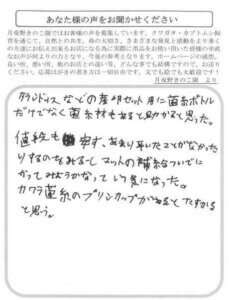 あなた様の声をお聞かせください
月夜野きのこ園ではお客様の声を募集しています。クワガタ・カブトムシ飼
育を通じて、自然との共生、命の大切さ、さまざまな発見と感動をより多く
の方達にお伝え出来るお店になる為に実際に用品をお使い頂いた皆様の率直
なお声が何よりの力となり、今後の参考となります。ホームページの感想、
良い所、悪い所、他のお店との違い等、どんな事でも結構ですので、お送り
ください。応募はがきの書き方は一切自由です。文でも絵でも大歓迎です！
月夜野きのこ園 より
タランドゥス などの産卵セット用に菌糸ボトル
だけでなく菌糸材もあると助かるかと思う。
値段も 安く、あまり開いたことがなかった
りするのをみると マットの補給ついでに
かってみようかなって いう気になった。
カワラ菌糸のプリンカップがあると たすかる
と思う。